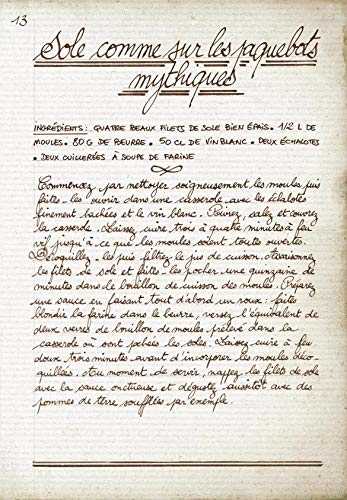 13
Sole comme sur les paquebots
mythiques
INGRÉDIENTS: QUATRE BEAUX FILETS DE SOLE BIEN ÉPAIS. 1/2 L DE
MOULES. 80 G DE BEURRE. 50 CL DE VIN BLANC. DEUX ÉCHALOTES
. DEUX CUILLERÉES À SOUPE DE FARINE
Commencez par nettoyer soigneusement les moules puis
faites-les ouvrir dans une casserole avec les échalotes
finement hachées et le vin blanc. Poivrez, salez et couvrez
la casserole. Laissez cuire trois à quatre minutes à feu
vif jusqu'à ce que les moules soient toutes ouvertes.
Décoquillez-les puis filtrez le jus de cuisson. Assaisonnez
les filets de sole et faites-les pocher une quinzaine de
minutes dans le bouillon de cuisson des moules. Préparez
une sauce en faisant tout d'abord un roux: faites
blondir la farine dans le beurre, versez l'équivalent de
deux verres de bouillon de moules prélevé dans la
casserole où sont pochées les soles. Laissez cuire à feu
doux trois minutes avant d'incorporer les moules déco-
quillées. Au moment de servir, nappez les filets de sole
avec la sauce onctueuse et dégustez aussitôt avec des
pommes de terre soufflées par exemple.